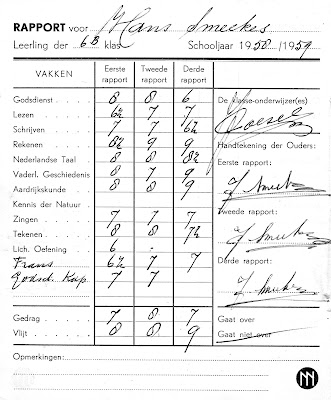 RAPPORT voor Hans Smeekes
Leerling der 6B klas Schooljaar 1958/1959
VAKKEN Eerste rapport Tweede rapport Derde rapport
Godsdienst 8 8 6 De klasse-onderwijzer(es)
Lezen 6½ 7 7
Schrijven 7 7 6½
Rekenen 8½ 9 9 Handtekening der Ouders:
Nederlandse Taal 8 8 8½ Eerste rapport:
Vaderl. Geschiedenis 8 7 9
Aardrijkskunde 8 8 9
Kennis der Natuur Tweede rapport:
Zingen 7 7 7
Tekenen 8 8 7½
Lich. Oefening 6 - - Derde rapport:
Frans 6½ 7 7
7 7
Gedrag 7 8 7 Gaat over
Vlijt 8 8 9 Gaat niet over
Opmerkingen: